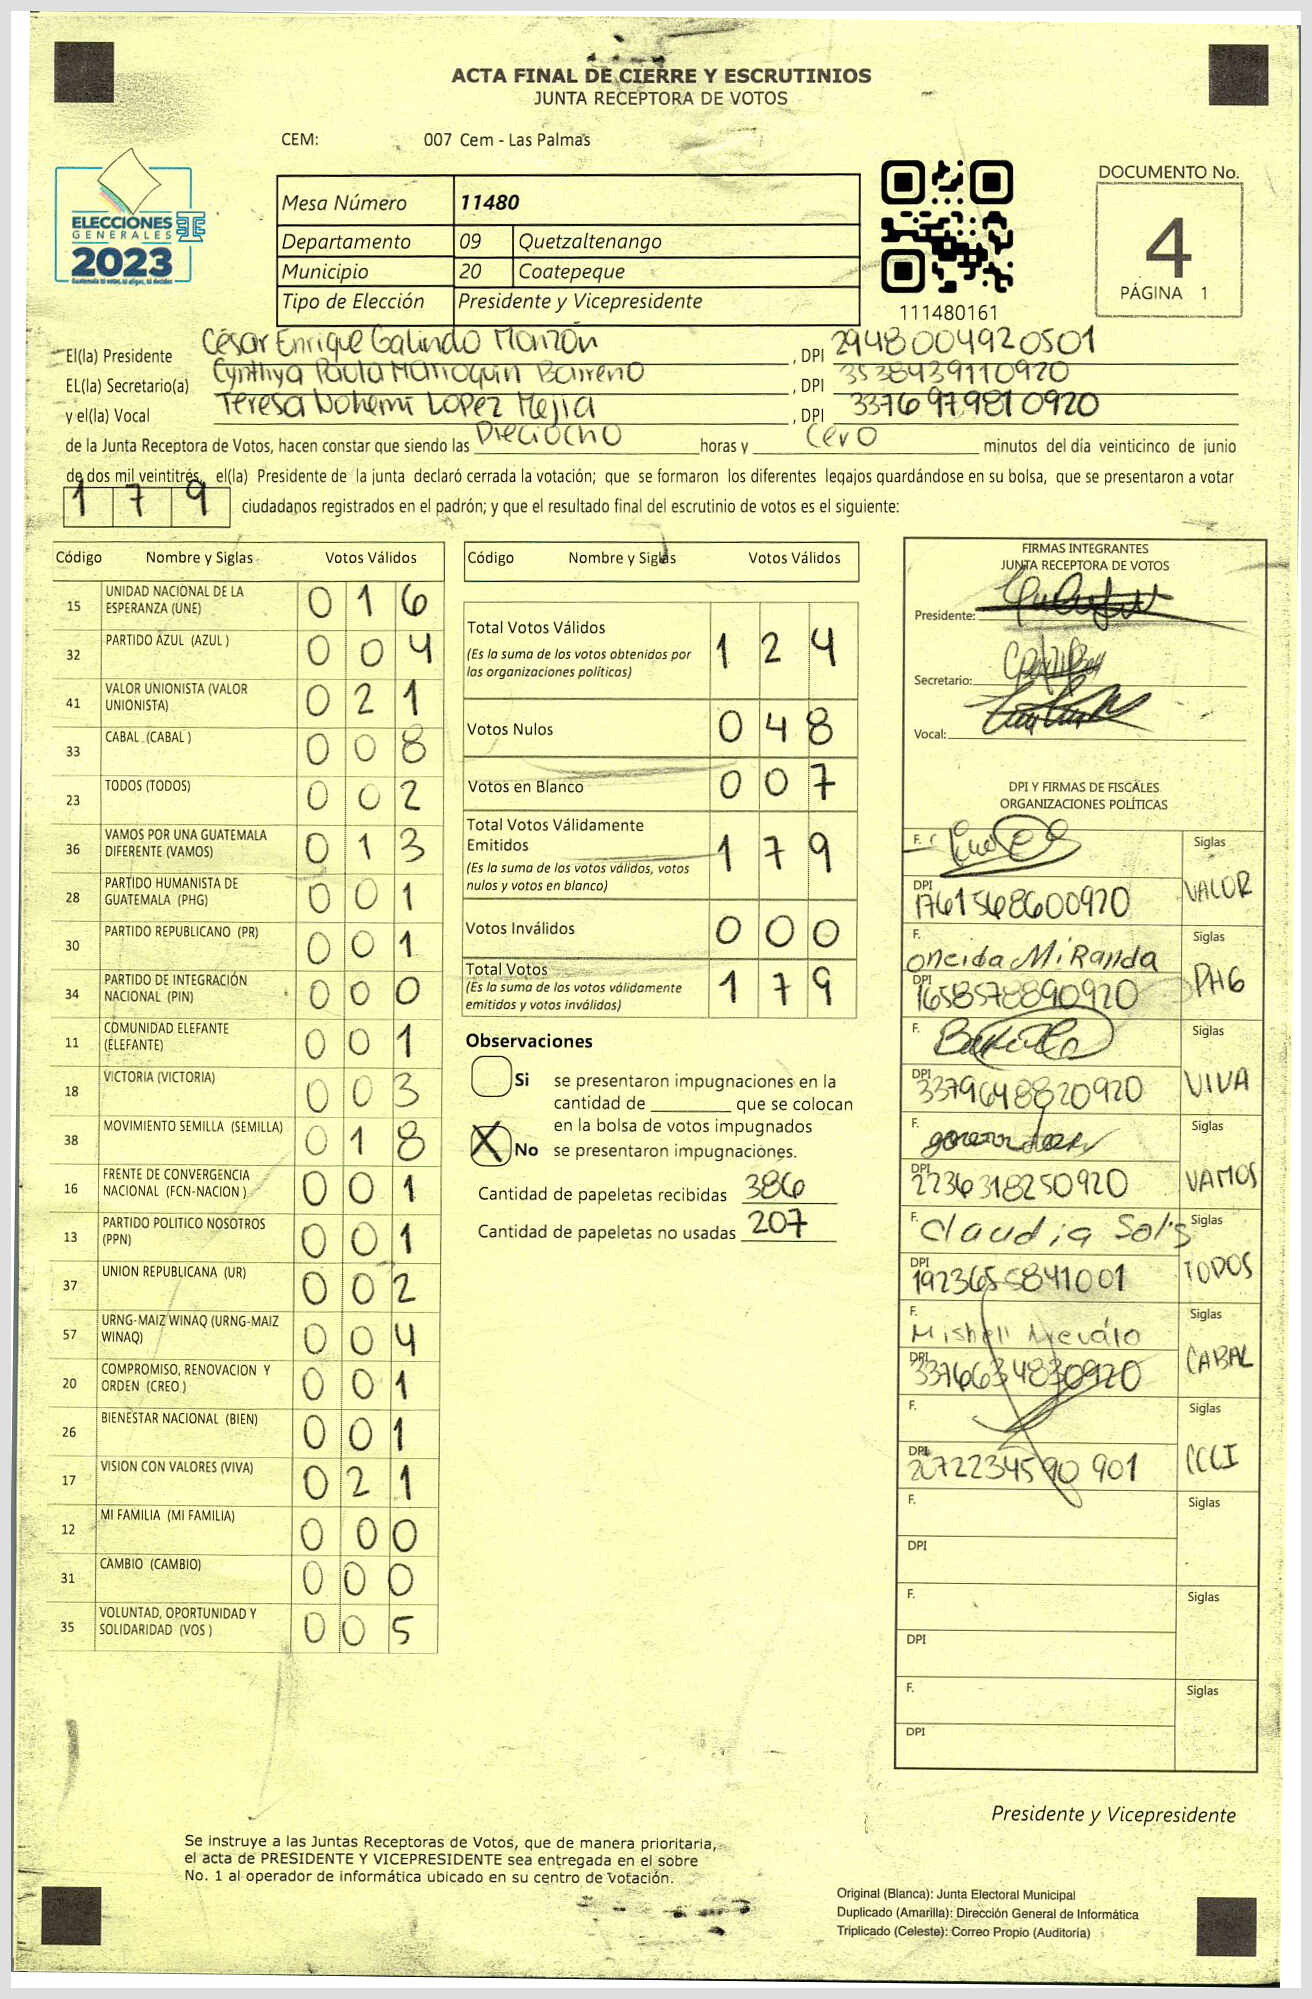 ACTA FINAL DE CIERRE Y ESCRUTINIOS
JUNTA RECEPTORA DE VOTOS
CEM: 007 Cem - Las Palmas
ELECCIONES
GENERALES
2023
Mesa Número 11480
Departamento 09 Quetzaltenango
Municipio 20 Coatepeque
Tipo de Elección Presidente y Vicepresidente
111480161
DOCUMENTO No.
4
PÁGINA 1
El(la) Presidente César Enrique Galindo Monzón, DPI 2948004920501
EL(la) Secretario(a) Cynthya Paola Marroquin Barreno, DPI 3538439110920
y el(la) Vocal Teresa Nohemi Lopez Mejia, DPI 3376979810920
de la Junta Receptora de Votos, hacen constar que siendo las Dieciocho horas y Cero minutos del día veinticinco de junio
de dos mil veintitrés, el(la) Presidente de la junta declaró cerrada la votación; que se formaron los diferentes legajos guardándose en su bolsa, que se presentaron a votar
179 ciudadanos registrados en el padrón; y que el resultado final del escrutinio de votos es el siguiente:
Código Nombre y Siglas Votos Válidos
15 UNIDAD NACIONAL DE LA ESPERANZA (UNE) 016
32 PARTIDO AZUL (AZUL ) 004
41 VALOR UNIONISTA (VALOR UNIONISTA) 021
33 CABAL (CABAL ) 008
23 TODOS (TODOS) 002
36 VAMOS POR UNA GUATEMALA DIFERENTE (VAMOS) 013
28 PARTIDO HUMANISTA DE GUATEMALA (PHG) 001
30 PARTIDO REPUBLICANO (PR) 001
34 PARTIDO DE INTEGRACIÓN NACIONAL (PIN) 000
11 COMUNIDAD ELEFANTE (ELEFANTE) 001
18 VICTORIA (VICTORIA) 003
38 MOVIMIENTO SEMILLA (SEMILLA) 018
16 FRENTE DE CONVERGENCIA NACIONAL (FCN-NACION ) 001
13 PARTIDO POLITICO NOSOTROS (PPN) 001
37 UNION REPUBLICANA (UR) 002
57 URNG-MAIZ WINAQ (URNG-MAIZ WINAQ) 004
20 COMPROMISO, RENOVACION Y ORDEN (CREO ) 001
26 BIENESTAR NACIONAL (BIEN) 001
17 VISION CON VALORES (VIVA) 021
12 MI FAMILIA (MI FAMILIA) 000
31 CAMBIO (CAMBIO) 000
35 VOLUNTAD, OPORTUNIDAD Y SOLIDARIDAD (VOS ) 005
Código Nombre y Siglas Votos Válidos
Total Votos Válidos 124
(Es la suma de los votos obtenidos por
las organizaciones políticas)
Votos Nulos 048
Votos en Blanco 007
Total Votos Válidamente
Emitidos 179
(Es la suma de los votos válidos, votos
nulos y votos en blanco)
Votos Inválidos 000
Total Votos 179
(Es la suma de los votos válidamente
emitidos y votos inválidos)
Observaciones
Si se presentaron impugnaciones en la
cantidad de ________ que se colocan
en la bolsa de votos impugnados
X No se presentaron impugnaciones.
Cantidad de papeletas recibidas 386
Cantidad de papeletas no usadas 207
FIRMAS INTEGRANTES
JUNTA RECEPTORA DE VOTOS
Presidente:
Secretario:
Vocal:
DPI Y FIRMAS DE FISCALES
ORGANIZACIONES POLÍTICAS
F. Siglas
DPI 1761568600920 VALOR
F. Oneida Miranda Siglas
DPI 1658578890920 PHG
F. Siglas
DPI 3379648820920 VIVA
F. Siglas
DPI 2236318250920 VAMOS
F. Claudia Solis Siglas
DPI 1923655841001 TODOS
F. Mishell Arevalo Siglas
DPI 3376634830920 CABAL
F. Siglas
DPI
F. Siglas
DPI
F. Siglas
DPI
F. Siglas
DPI
Presidente y Vicepresidente
Se instruye a las Juntas Receptoras de Votos, que de manera prioritaria,
el acta de PRESIDENTE Y VICEPRESIDENTE sea entregada en el sobre
No. 1 al operador de informática ubicado en su centro de Votación.
Original (Blanca): Junta Electoral Municipal
Duplicado (Amarilla): Dirección General de Informática
Triplicado (Celeste): Correo Propio (Auditoría)